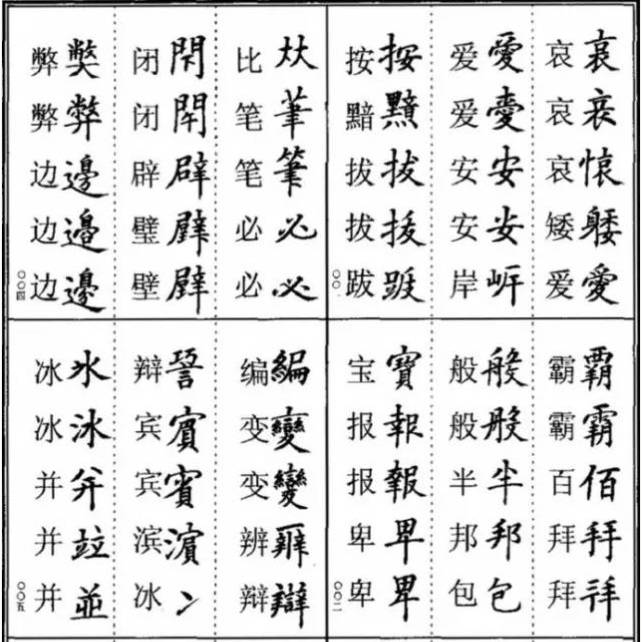 哀愛
哀哀哀矮爱
愛安安
爱爱安安岸
按拔
按黯拔拔跋
〇〇
霸霸佰拜
霸霸百拜拜
般般半邦包
般般半邦包
寶報報卑卑
宝报报卑卑
〇〇二
筆筆必必
比笔笔必必
閇辟
闭闭辟璧壁
弊邊邊邊
弊弊边边边
〇〇四
編變變辯
编变变辨辩
賓賓濱冫
辩宾宾滨冰
氷冰并竝並
冰冰并并并
〇〇五